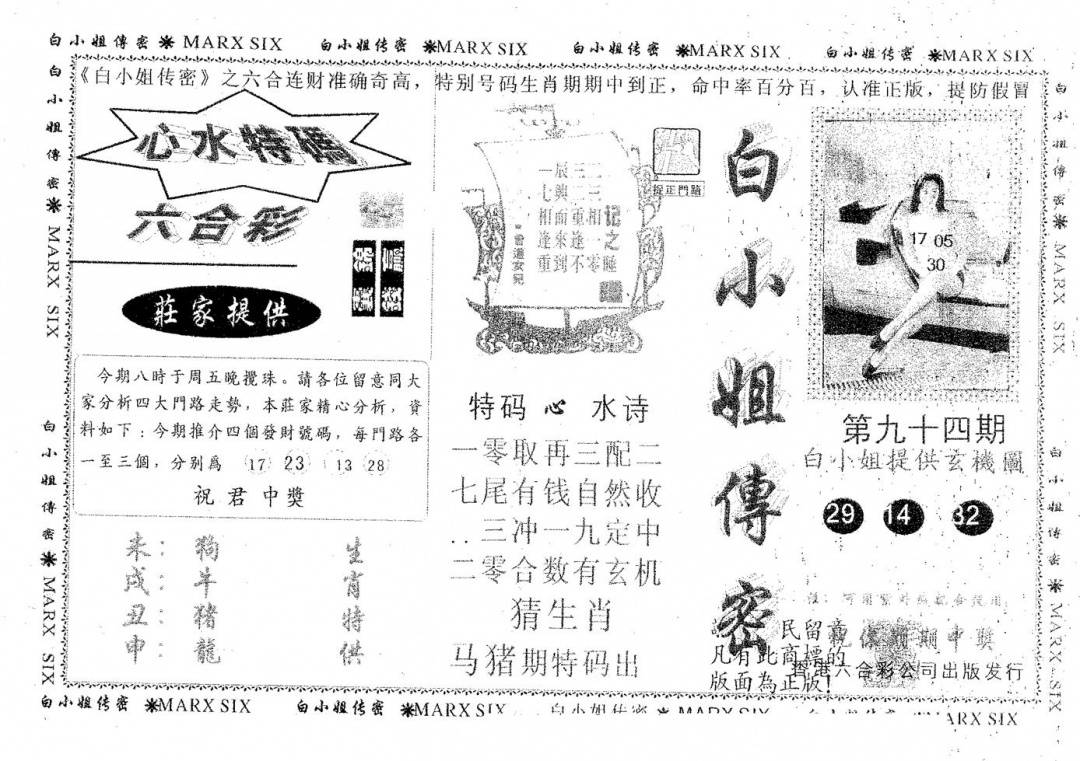 白小姐傳密 ✷ MARX SIX 白小姐传密 ✷MARX SIX 白小姐传密 ✷MARX SIX 白小姐传密 ✷MARX SIX
白小姐傳密 ✷ MARX SIX
白小姐傳密 ✷ MARX SIX
《白小姐传密》之六合连财准确奇高，特别号码生肖期期中到正，命中率百分百，认准正版，提防假冒
心水特碼
六合彩
莊家提供
今期八時于周五晚攪珠。請各位留意同大
家分析四大門路走勢，本莊家精心分析，資
料如下：今期推介四個發財號碼，每門路各
一至三個，分别爲 17 23 13 28
祝君中獎
未：狗
戌：牛
丑：豬
申：龍
生肖特供
捉正門路
记之
二三相一睡
三二重逢零
辰興面來到
一七相逢重
特码 心 水诗
一零取再三配二
七尾有钱自然收
三冲一九定中
二零合数有玄机
猜生肖
马猪期特码出
白小姐傳密
17 05
30
第九十四期
白小姐提供玄機圖
29 14 32
祝你期期中獎
民留意
凡有此商標的
版面為正版!
香港六合彩公司出版发行
白小姐傳密 ✷ MARX SIX
白小姐传密 ✷ MARX SIX
白小姐传密 ✷MARX SIX 白小姐传密 ✷MARX SIX 白小姐传密 ✷ MARX SIX ARX SIX